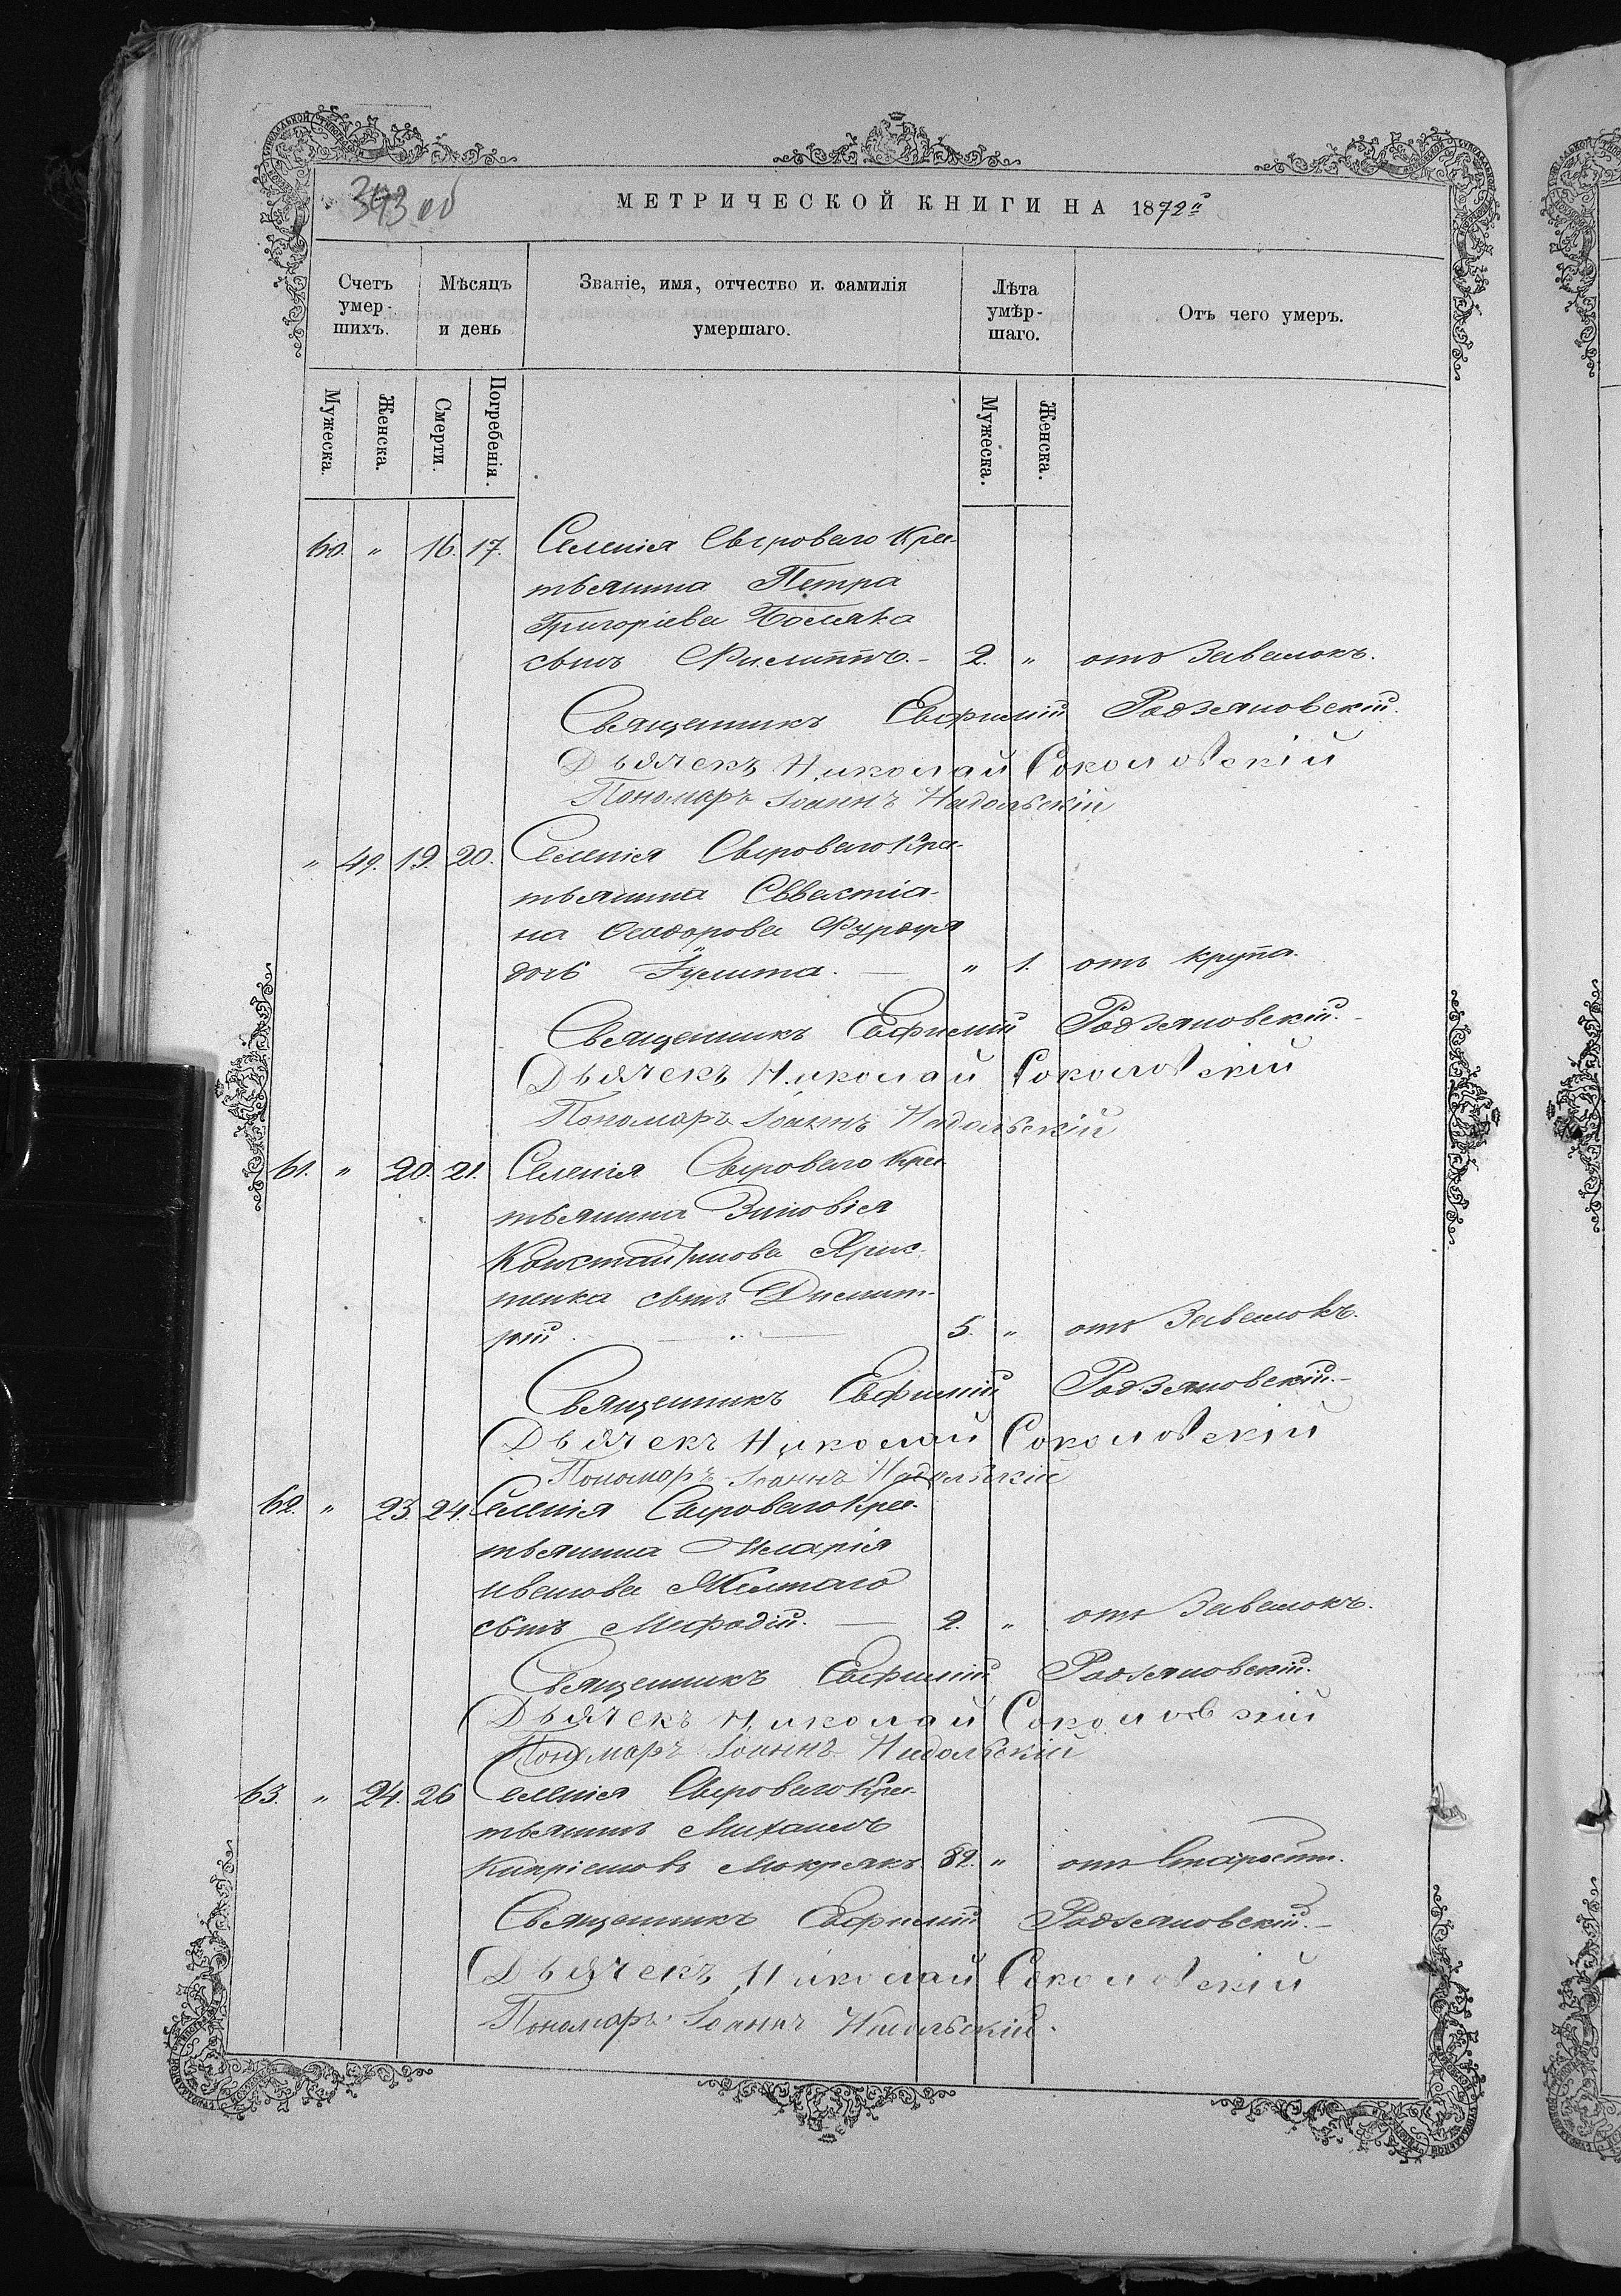 393 об
МЕТРИЧЕСКОЙ КНИГИ НА 1872й
Счетъ умер-шихъ.
Мѣсяцъ и день
Званіе, имя, отчество и фамилія умершаго.
Лѣта умѣр-шаго.
Отъ чего умеръ.
Мужеска. Женска. Смерти. Погребенія. Мужеска. Женска.
60. " 16. 17. Селенія Сыроваго Крес-
тьянина Петра
Григоріева
сынъ Филиппъ. - 2. " отъ Завалокъ.
Священникъ Евфимій Родзяновскій.
Дьячекъ Николай Соколовскій
Пономарь Іоаннъ Надольскій
" 49. 19. 20. Селенія Сыроваго Крес-
тьянина Севастіа-
на Феодорова Фурдуя
дочь Іулита. — " 1. отъ крупа.
Священникъ Евфимій Родзяновскій. -
Дьячекъ Николай Соколовскій
Пономарь Іоаннъ Надольскій
61. " 20. 21. Селенія Сыроваго Крес-
тьянина Зиновія
Константинова Хрис-
тенка сынъ Димит-
рій. — " — 5. " отъ Завалокъ.
Священникъ Евфимій Родзяновскій. -
Дьячекъ Николай Соколовскій
Пономарь Іоаннъ Надольскій
62. " 23. 24. Селенія Сыроваго Крес-
тьянина Иларія
Иванова Желтаго
сынъ Мефодій. — 2. " отъ Завалокъ.
Священникъ Евфимій Родзяновскій.
Дьячекъ Николай Соколовскій
Пономарь Іоаннъ Надольскій
63. " 24. 26 Селенія Сыроваго Крес-
тьянинъ Михаилъ
Кипріановъ Мокрякъ 82. " отъ Старости.
Священникъ Евфимій Родзяновскій. -
Дьячекъ Николай Соколовскій
Пономарь Іоаннъ Надольскій.